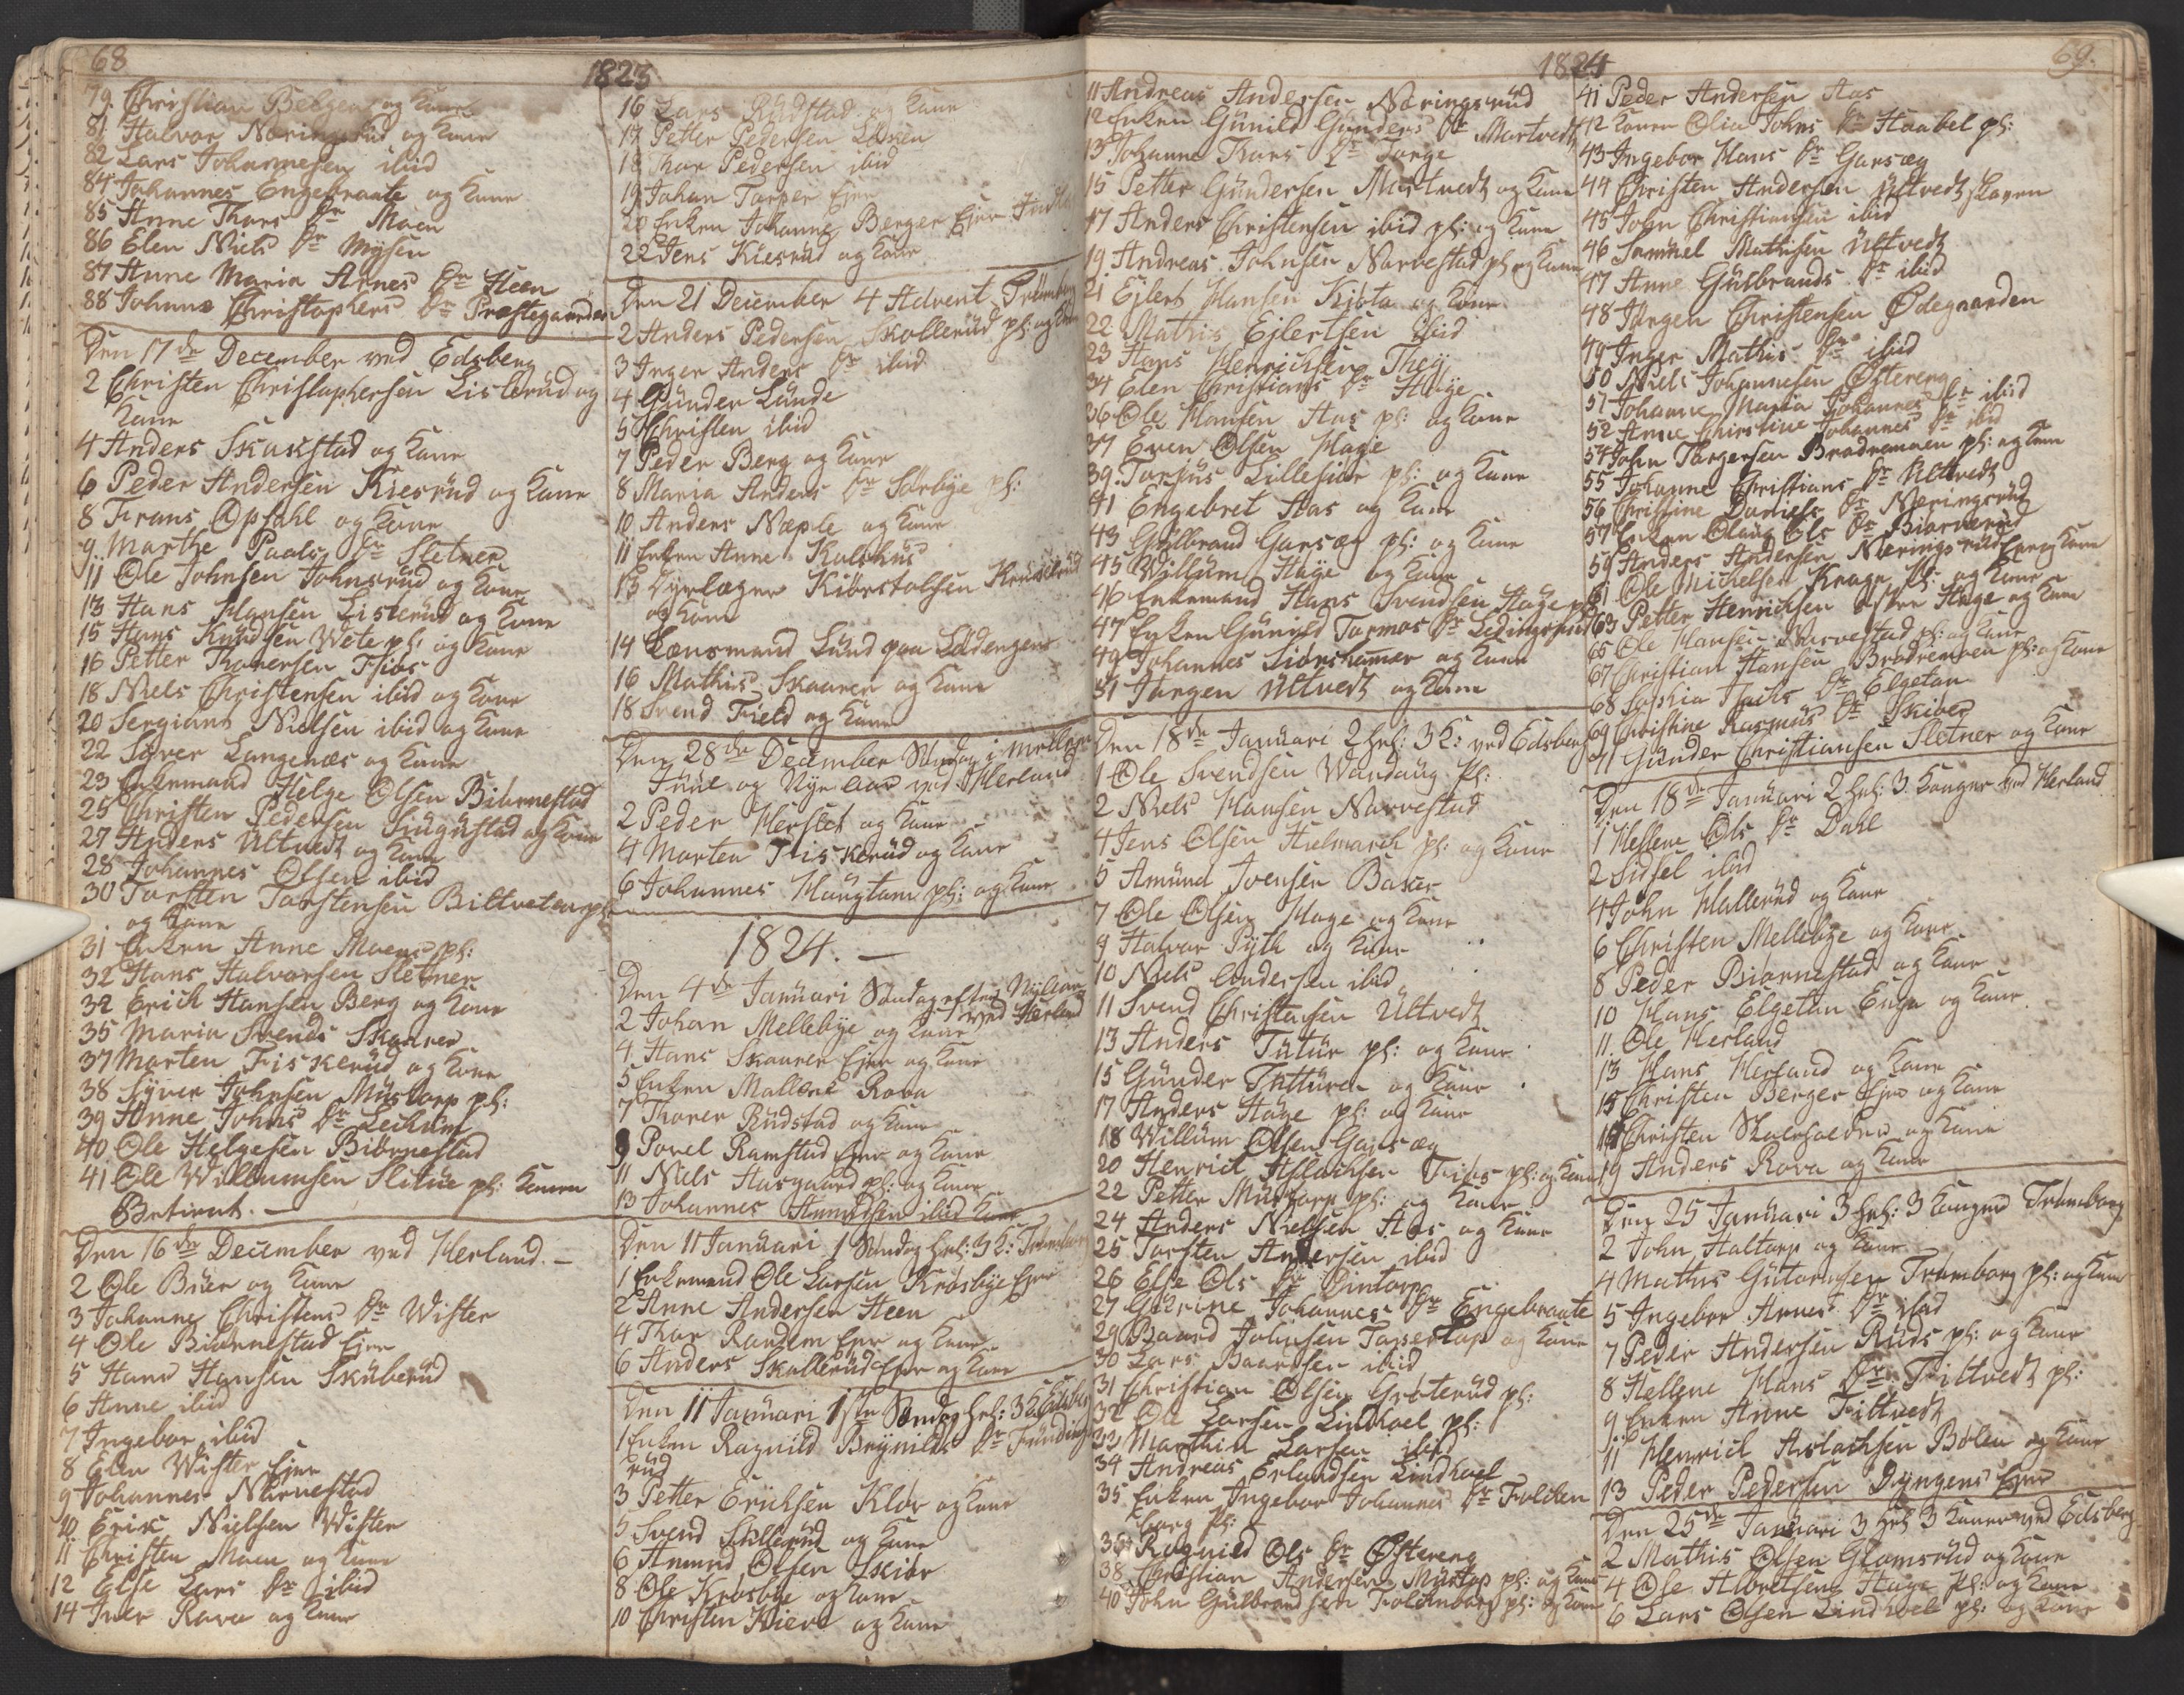 68
1823
79. Christian Belgen og Kone
81 Halvor Næringsrud og Kone
82 Lars Johannesen ibid
84 Johannes Engebraate og Kone
85 Anne Thors Dr Moen
86 Elen Niels Dr Mysen
87 Anne Maria Arnes Dr Heen
88 Johanne Christophers Dr Præstegaarden
Den 17de December ved Edsberg
2 Christen Christophersen Listerud og
Kone
4 Anders Skakstad og Kone
6 Peder Andersen Kiesrud og Kone
8 Frans Opsahl og Kone
9 Marthe Paals Dr Sletner
11 Ole Johnsen Johnsrud og Kone
13 Hans Hansen Listerud og Kone
15 Hans Knudsen Wete pl: og Kone
16 Petter Thoresen
18 Niels Christensen ibid og Kone
20 Sergiant Nielsen ibid og Kone
22 Syver Langenæs og Kone
23 Enkemand Helge Olsen Biørnestad
25 Christen Pedersen og Kone
27 Anders Ultvedt og Kone
28 Johannes Olsen ibid
30 Torsten Torstensen pl:
og Kone
31 Enken Anne Moens pl:
32 Hans Halvorsen Sletner
34 Erich Hansen Berg og Kone
35 Maria Svends Skaarer
37 Morten Fiskerud og Kone
38 Syver Johnsen Mustorp pl:
39 Anne Johns Dr Leikum
40 Ole Helgesen Biørnestad
41 Ole Willumsen Slitue pl: Konen
Betient. -
Den 16de December ved Herland. -
2 Ole Buer og Kone
3 Johanne Christens Dr Wister
4 Ole Biørnestad Ejer
5 Hans Hansen Skuberud
6 Anne ibid
7 Ingebor ibid
8 Elen Wister Ejer
9 Johannes Narvestad
10 Erik Nielsen Wister
11 Christen Moen og Kone
12 Else Lars Dr ibid
14 Iver Rova og Kone
16 Lars Rudstad og Kone
17 Petter Pedersen
18 Thor Pedersen ibid
19 Johan Torper Ejer
20 Enken Johanne Berger Ejer
22 Jens Kiesrud og Kone
Den 21 December 4 Advent Trømborg
2 Anders Pedersen Skollerud pl: og Kone
3 Inger Anders Dr ibid
4 Gunder Lunde
5 Christen ibid
7 Peder Berg og Kone
8 Maria Anders Dr Sørbye pl:
10 Anders Næple og Kone
11 Enken Anne Kalshus
13 Dyrlæger Kibrstolsen
og Kone
14 Lænsmand Lund paa
16 Mathis Skaarer og Kone
18 Svend Field og Kone
Den 28de December Søndag i mellem
Juul og Nye Aar ved Herland
2 Peder Herslet og Kone
4 Morten Fiskerud og Kone
6 Johannes Haugtam pl: og Kone
1824. -
Den 4de Januari Søndag efter Nyeaar
ved Herland
2 Johan Mellebye og Kone
4. Hans Skaarer Ejer og Kone
5 Enken Mallene Rova
7 Thorer Rudstad og Kone
9 Povel Ramstad Ejer og Kone
11 Niels Aasgaard pl: og Kone
13 Johannes Amundsen ibid Kone
Den 11 Januari 1 Søndag hel: 3 K: Trømborg
1 Enkemand Ole Larsen Krosbye Ejer
2 Anne Andersen Heen
4 Thor Randem Ejer og Kone
6 Anders Skallerud Ejer og Kone
Den 11 Januari 1ste Søndag hel: 3 K: Edsberg
1 Enken Ragnild Brynilds Dr
rud
3 Petter Erichsen Klør og Kone
5 Svend Skallerud og Kone
6 Amund Olsen Skiør
8 Ole Krosbye og Kone
10 Christen og Kone
1824
69.
11 Andreas Andersen Næringsrud
12 Enken Gunild Gunders Dr Martvedt
13 Johanne Thors Dr Torge
15 Petter Gundersen Martvedt og Kone
17 Anders Christensen ibid pl: og Kone
19. Andreas Johnsen Narvestad pl: og Kone
21 Ejlert Hansen og Kone
22 Mathis Ejlertsen ibid
23 Hans Henrichsen
34 Elen Christians Dr Hage
36 Ole Hansen Aas pl: og Kone
37 Even Olsen Hage
39. Torjus pl: og Kone
41 Engebret Aas og Kone
43 Gulbrand Garsæg pl: og Kone
45 Willum Hage og Kone
46 Enkemand Hans Svendsen Hage pl:
47 Enken Gunild Tormos Dr
49 Johannes Siørshamer og Kone
51 Jørgen Ultvedt og Kone
Den 18de Januari 2 hel: 3 K: ved Edsberg
1 Ole Svendsen Wandaug pl:
2 Niels Hansen Narvestad
4 Jens Olsen Hielmark pl: og Kone
5 Amund Joensen Baker
7 Ole Olsen Hage og Kone
9 Halvor Pyth og Kone
10 Niels Andersen ibid
11 Svend Christensen Ultvedt
13 Anders Tutur pl: og Kone
15 Gunder Tutturen og Kone
17 Anders Hage pl: og Kone
18 Willum Olsen Garsæg
20 Henrick Aslachsen pl: og Kone
22 Petter Mustorp pl: og Kone
24 Anders Nielsen Aas og Kone
25 Torsten Andersen ibid
26 Else Ols Dr Qintorp
27 Gurine Johannes Dr Engebraate
29 Baard Johnsen Tosertop og Kone
30 Lars Baardsen ibid
31 Christian Olsen Grøterud pl:
32 Ole Larsen Lindhoel pl:
33 Marthin Larsen ibid
34 Andreas Erlandsen Lindhoel
35 Enken Ingebor Johannes Dr Folchen
borg pl:
36 Ragnild Ols Dr Østereng
38 Christian Andersen Mustop pl: og Kone
40 John Gulbrandsen Folchenborg pl: og Kone
41 Peder Andersen Aas
42 Konen Olia Johns Dr Haabel pl:
43 Ingebor Hans Dr Garsæg
44 Christen Andersen Ultvedt skoven
45 John Christiansen ibid
46 Samuel Mathisen Ultvedt
47 Anne Gulbrands Dr ibid
48 Jørgen Christensen Ødegaarden
49 Inger Mathis Dr ibid
50 Niels Johannesen Østereng
51 Johanne Maria Johannes Dr ibid
52 Anne Christine Johannes Dr ibid
54 John Torgersen Brødremoen pl: og Kone
55 Johanne Christians Dr Ultvedt
56 Christine Daniels Dr Næringsrud
57 Enken Olaug Ols Dr Biørnerud
59 Anders Andersen Næringsrud Ejer og Kone
61 Ole Michelsen Krage pl: og Kone
63 Petter Henrichsen østre Hage og Kone
65 Ole Hansen Narvestad pl: og Kone
67 Christian Hansen Brødremoen pl: og Kone
68 Sophia Dr Elgetun
69 Christine Rasmus Dr Skiber
71 Gunder Christiansen Sletner og Kone
Den 18de Januari 2 hel: 3 Konger ved Herland
1 Hellene Ols Dr Dahl
2 Sidsel ibid
4 John Hallerud og Kone
6 Christen Mellebye og Kone
8 Peder Biørnestad og Kone
10 Hans Elgetun Engen og Kone
11. Ole Herland
13 Hans Herland og Kone
15 Christen Berger Ejer og Kone
17 Christen og Kone
19 Anders Rova og Kone
Den 25 Januari 3 hel: 3 Konger Trømborg
2 John Haltorp og Kone
4 Mathis Gutormsen Trømborg pl: og Kone
5 Ingebor Arnes Dr ibid
7 Peder Andersen Ruds pl: og Kone
8 Hellene Hans Dr Tiltvedt pl:
9. Enken Anne Tiltvedt
11 Henrick Aslachsen Bølen og Kone
13 Peder Pedersen Dyngens Ejer
Den 25de Januari 3 hel 3 Konger ved Edsberg
2 Mathis Olsen Glomsrud og Kone
4 Ole Albretsen Hage pl: og Kone
6 Lars Olsen Lindhoel pl: og Kone